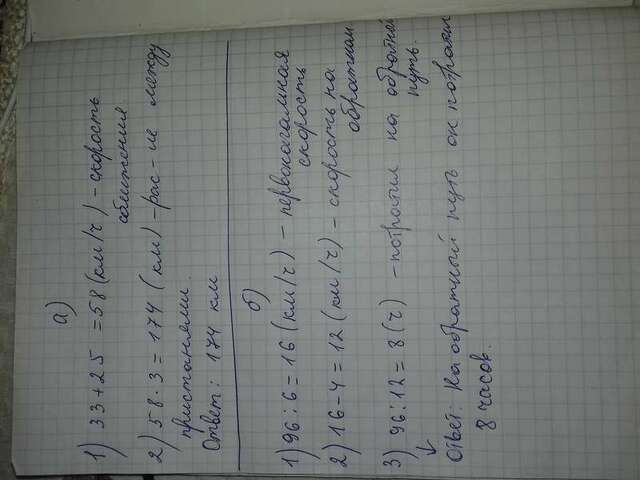 а)
1) 33+25 =58 (км/ч) - скорость
сближения
2) 58·3=174 (км) -рас-ие между
пристанями.
Ответ: 174 км
б)
1) 96:6=16 (км/ч) - первоначальная
скорость
2) 16-4=12 (км/ч) - скорость на
обратном
3) 96:12=8 (ч) -потратил на обратный
путь.
Ответ: На обратный путь он потратил
8 часов.